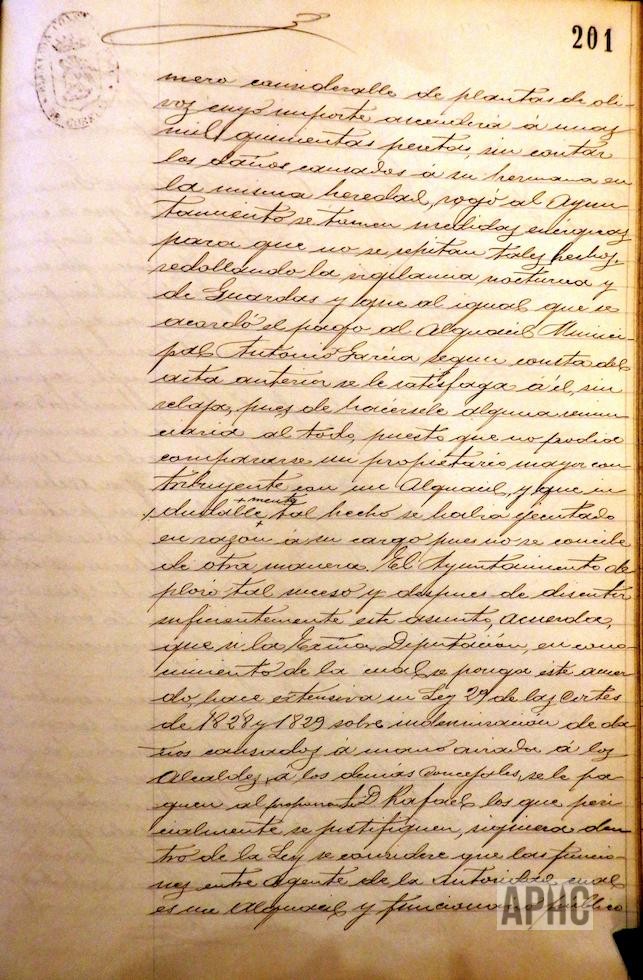 201
mero considerable de plantas de oli-
voz cuyo importe ascendería á unas
mil quinientas pesetas, sin contar
los daños causados á su hermana en
la misma heredad, rogó al Ayun
tamiento se tomen medidas energicas
para que no se repitan tales hechos,
redoblando la vigilancia nocturna y
de Guardas y que al igual que se
acordó el pago al Alguacil Munici-
pal Antonio García segun consta del
acta anterior se le satisfaga á él, sin
relaja, pues de hacérsele alguna renun
ciaria al todo, puesto que no podia
compararse un propietario mayor con
tribuyente con un Alguacil, y que in
dudable + mente tal hecho se habia ejecutado
en razón á su cargo pues no se concibe
de otra manera. El Ayuntamiento de
ploró tal suceso y despues de discutir
suficientemente este asunto, acuerda,
que si la Exma Diputación, en cono
cimiento de la cual se ponga este acuer
do, hace extensiva su Ley 29 de las Cortes
de 1828 y 1829 sobre indemnización de da-
ños causados á mano airada á los
Alcaldes, á los demás concejales, se le pa
guen al proponente D Rafael los que peri
cialmente se justifiquen, siquiera den
tro de la Ley se considere que las funcio
nes entre Agente de la Autoridad cual
es un Alguacil y funcionario público
APHC